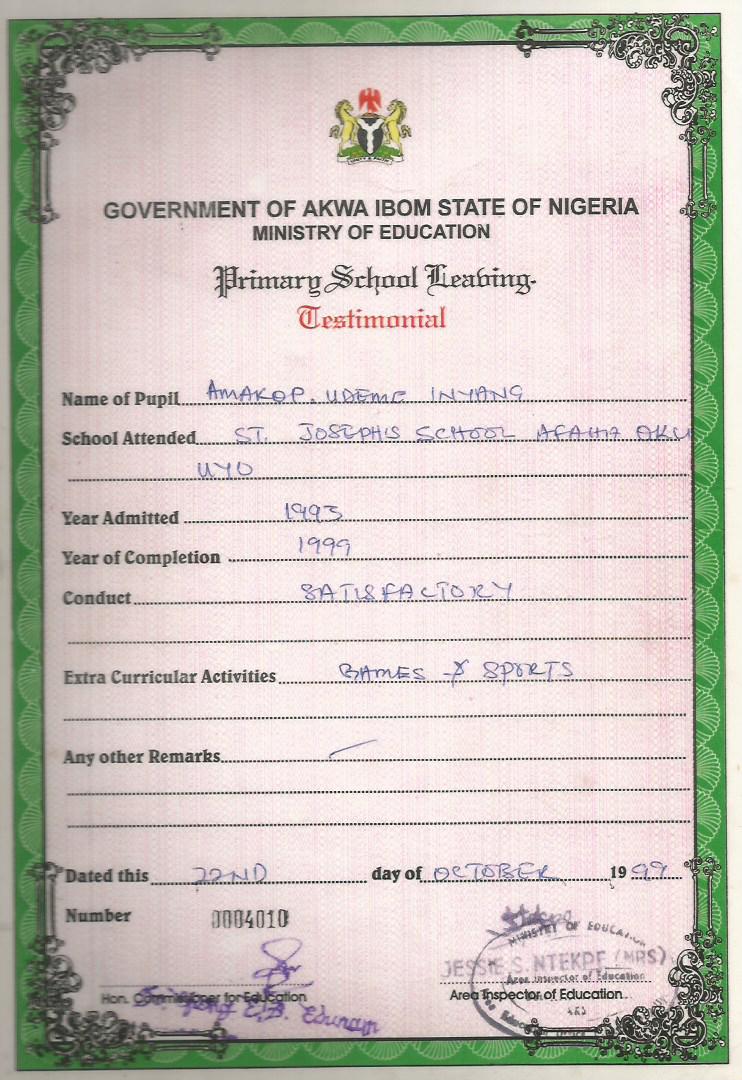 GOVERNMENT OF AKWA IBOM STATE OF NIGERIA
MINISTRY OF EDUCATION
Primary School Leaving
Testimonial
Name of Pupil AMAKOP. UDEME INYANG
School Attended ST. JOSEPH'S SCHOOL AFAHA OKU
UYO
Year Admitted 1993
Year of Completion 1999
Conduct SATISFACTORY
Extra Curricular Activities GAMES & SPORTS
Any other Remarks
Dated this 22ND day of OCTOBER 1999
Number 0004010
MINISTRY OF EDUCATION
JESSIE S. NTEKPE (MRS)
Area Inspector of Education
Hon. Commissioner for Education Area Inspector of Education